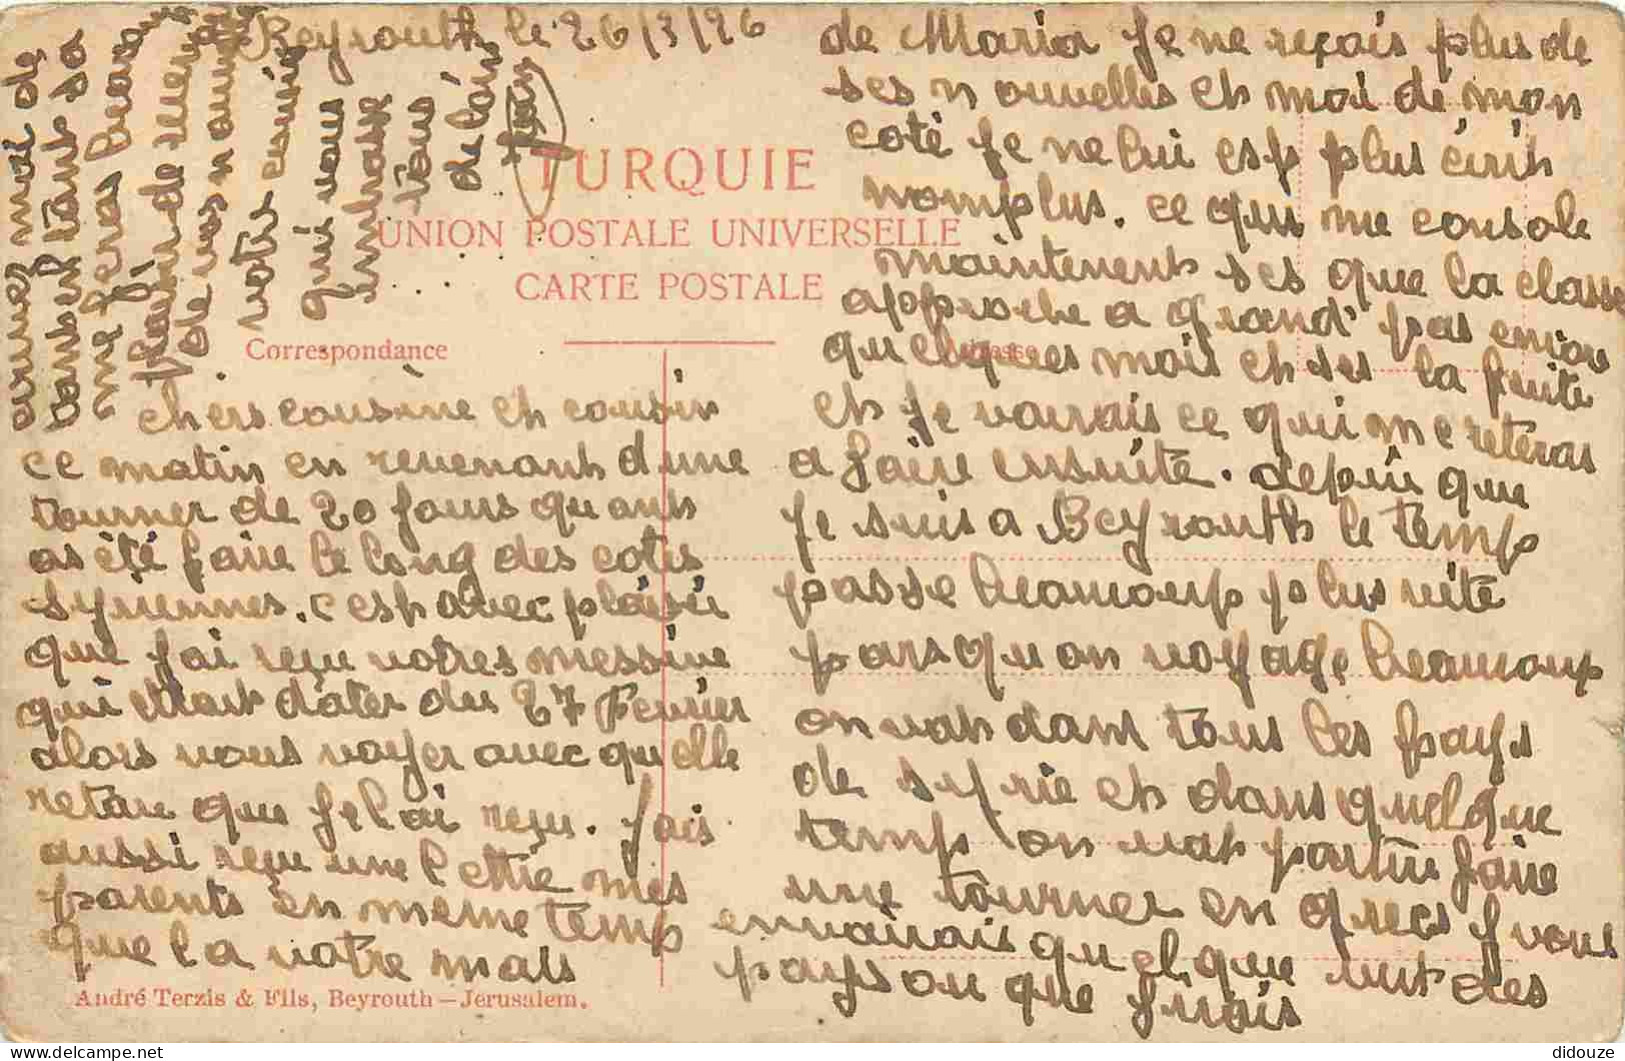 Beyrouth le 26/3/26
TURQUIE
UNION POSTALE UNIVERSELLE
CARTE POSTALE
Correspondance
chers cousine et cousin
ce matin en revenant d une
tourner de 20 jours qu ont
as été faire le long des cotes
syriennes. c est avec plaisir
que j ai reçu votres messive
qui etait dater du 27 Fevrier
alors vous voyer avec quelle
retare que je l ai reçu. j ais
aussi reçu une lettre mes
parents en meme temp
que la votre mais
de Maria je ne reçois plus de
ses nouvelles et moi de mon
coté je ne lui est plus écrit
nomplus. ce qui me console
maintenent ses que la classe
approche a grand pas encore
quelques mois et ses la fuite
et je vairais ce qui me reteras
a faire ensuite. depuis que
je suis a Beyrouth le temp
passe beaucoup plus vite
parsqu on voyage beaucoup
on vat dans tous les pays
de syrie et dans quelque
temp on vat partir faire
une tourner en grecs je vous
envairais quelque vut des
pays ou que j vais
ecrives moi de
tant sa
me feras beaucoup
plaisir de
de vos nouvelles
votre cousin
qui vous
embrasse
tous
de loin
André Terzis & Fils, Beyrouth — Jerusalem.
didouze